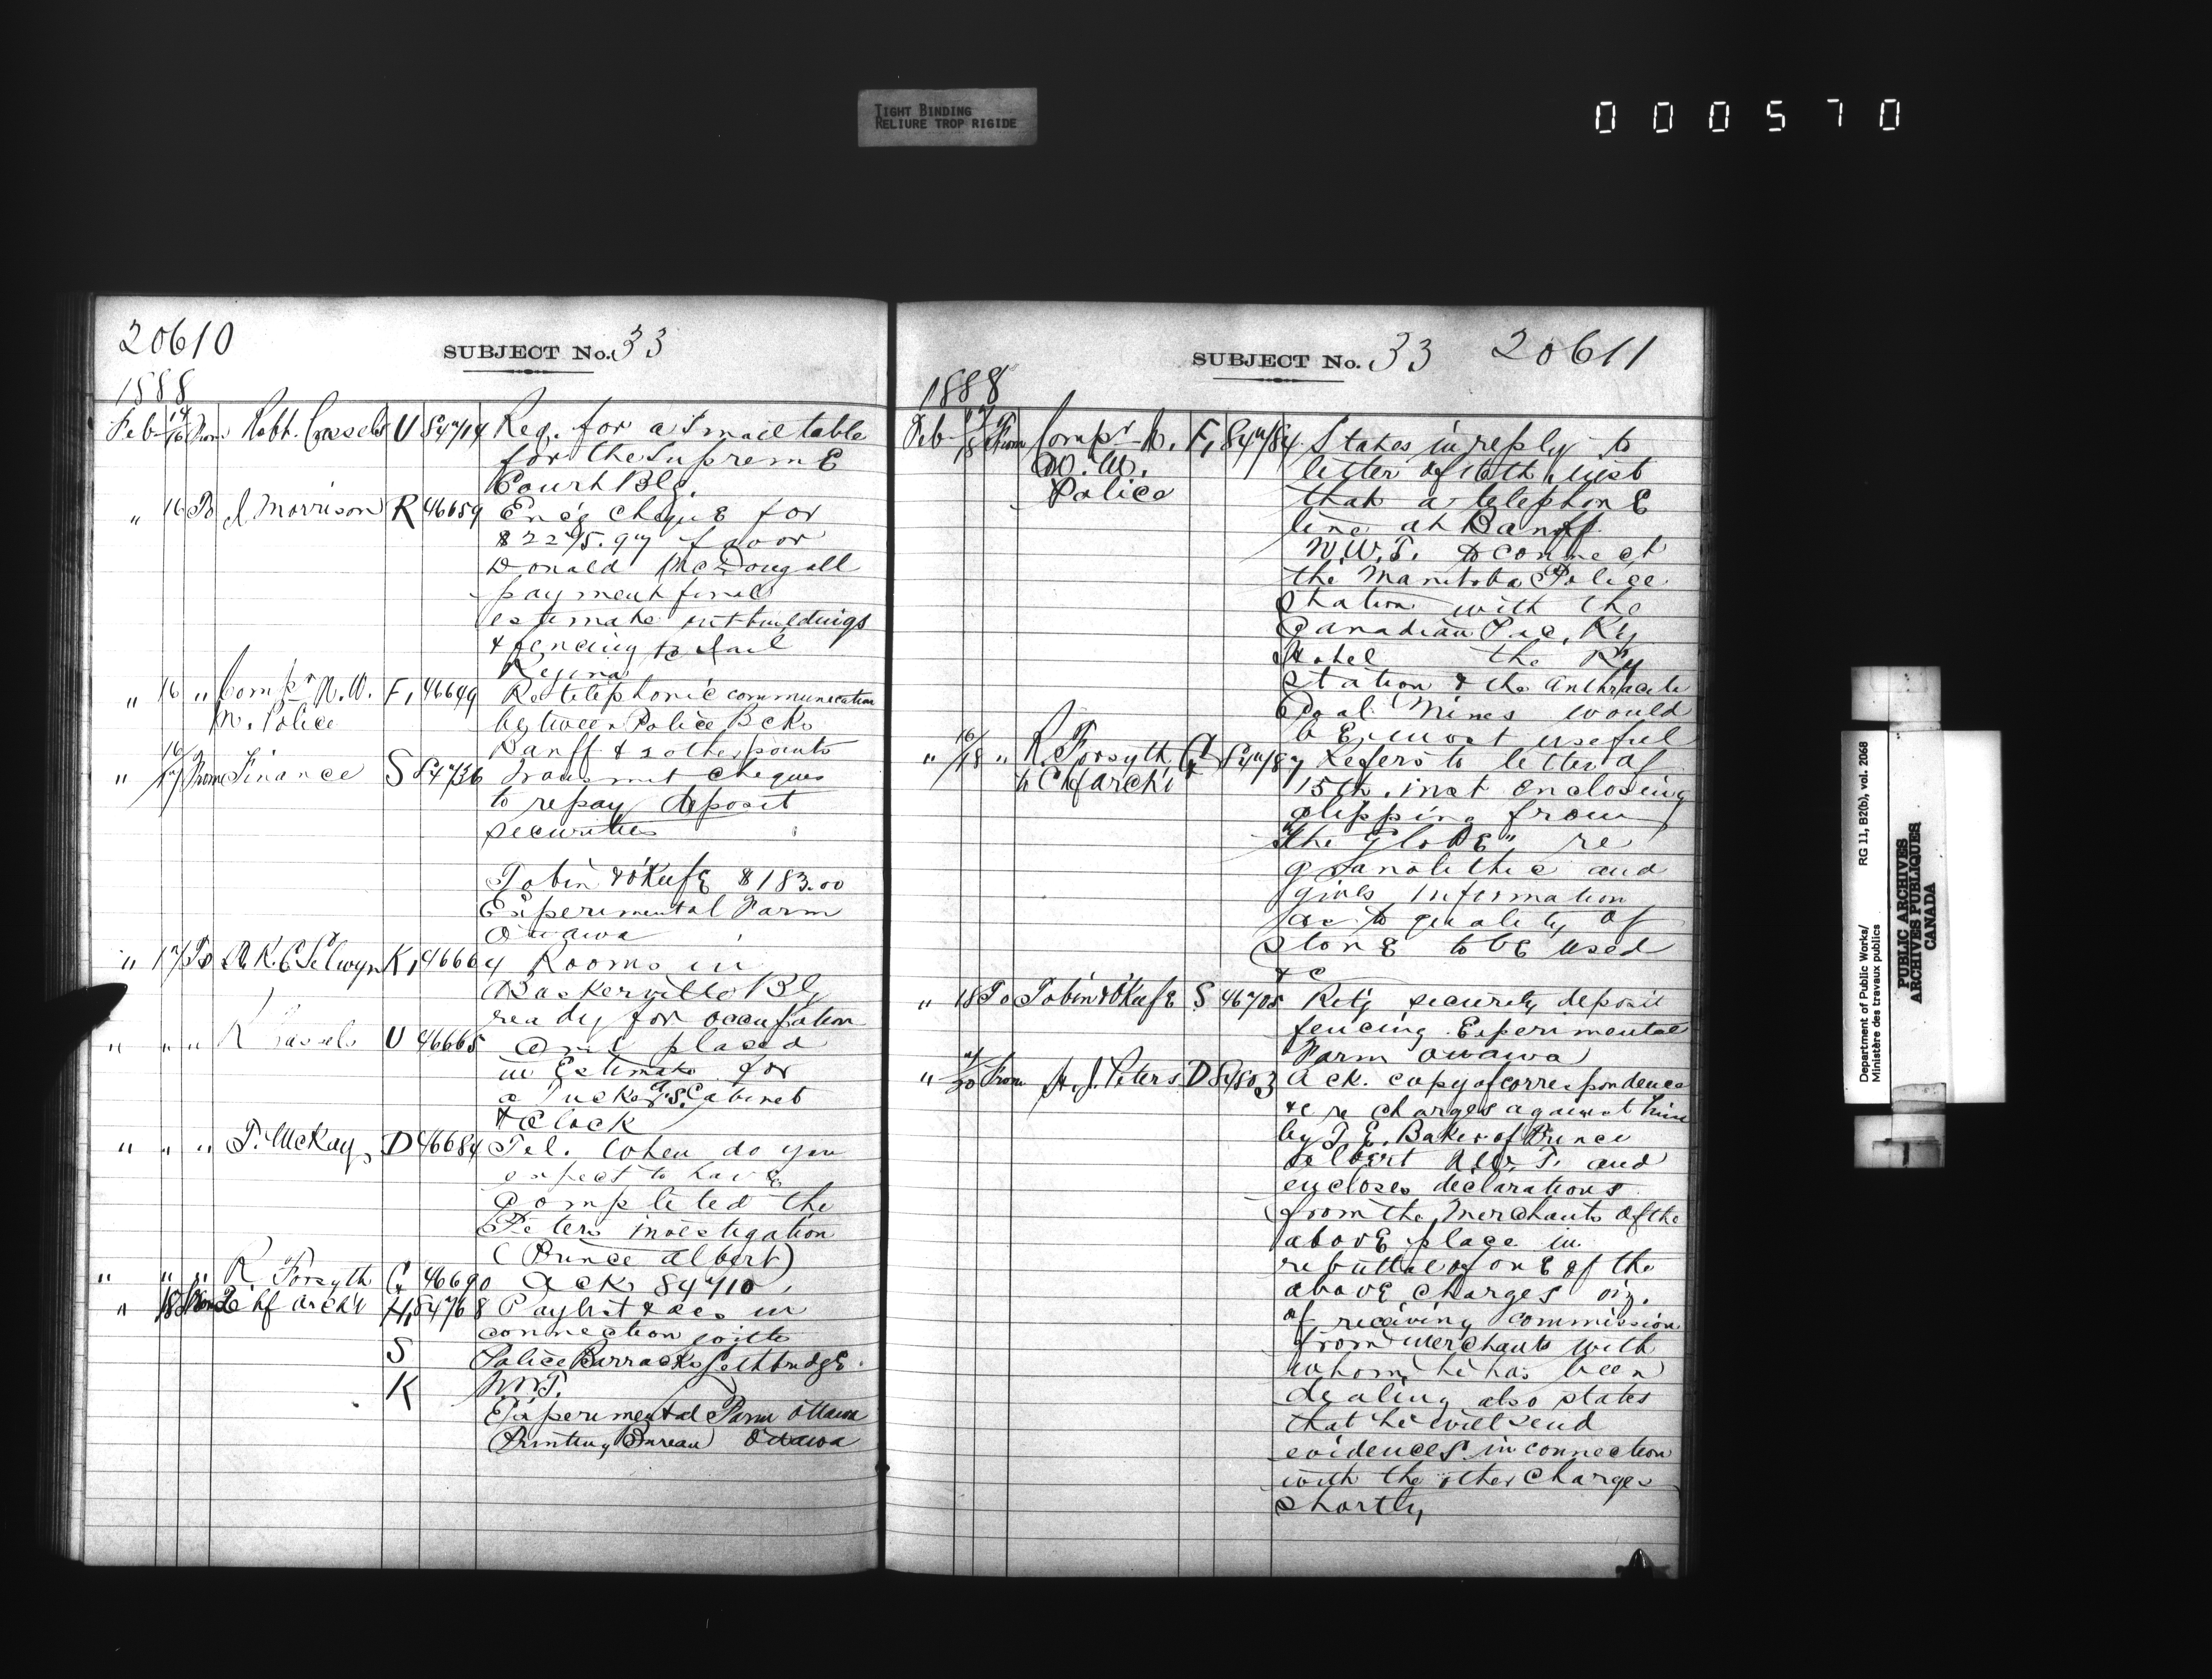 TIGHT BINDING
RELIURE TROP RIGIDE
000570
20610
SUBJECT No. 33
1888
Feb 14/16 From Robt. Cassels U 84714 Req. for a small table
for the Suprem E
Court Blg.
" 16 To J. Morrison R 46659 Enc'g Chequ E for
$2275.97 favor
Donald McDougall
payment final
estimate outbuildings
& fencing to Jail
Regina
" 16 " Compr N. W. F, 46649 Re telephonic communication
M. Police between Police Bcks
Banff & 2 other points
" 16/17 From Finance S 84736 Transmit cheques
to repay deposit
securities
Tobin & O'KeefE $183.00
Experimental Farm
Ottawa
" 17 To A. R. C Selwyn K, 46664 Rooms in
Baskerville Blg
ready for occupation
" " " R Cassels U 46665 Amt placed
in Estimate for
a Tucker S. Cabinet
& Clock
" " " T. McKay D 46684 Tel. When do you
expect to havE
completed the
Peters investigation
(Prince Albert)
" " " R Forsyth G 46690 Ack 84710
" 18 From Chf Archt H, 84768 Paylist & acs in
connection with
S Police Barracks LethbridgE.
K NWT.
Experimental Farm Ottawa
Printing Bureau Ottawa
SUBJECT No. 33 20611
1888
Feb 17/18 From Compr N. F, 84784 States in reply to
W. M. letter of 16th inst
Police that a telephonE
line at Banff
N.W.T. to connect
the Manitoba Police
station with the
Canadian Pac. Ry
Hotel the Ry
station & the Anthracite
Coal Mines would
bE most useful
" 16/18 " R. Forsyth G 84787 Refers to letter of
to Chf Archt 15th. inst enclosing
clipping from
"the GlobE" re
granolithic and
gives information
as to quality of
stonE to bE used
& c
" 18 To Tobin & O'KeefE S 46705 Ret'g security deposit
fencing Experimental
Farm Ottawa
" 20 From H. J. Peters D 84803 Ack. copy of correspondence
&c re charges against him
by T. E. Baker of Prince
Albert N.W.T. and
encloses declarations
from the Merchants of the
abovE place in
rebuttal of onE of the
abovE charges viz.
of receiving commission
from merchants with
whom he has been
dealing also states
that he will send
evidences in connection
with the other charges
shortly
Department of Public Works/ RG 11, B2(b), vol. 2068
Ministère des travaux publics
PUBLIC ARCHIVES
ARCHIVES PUBLIQUES
CANADA